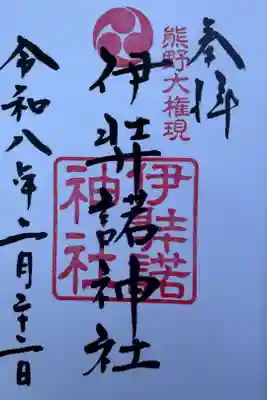 奉拝
熊野大権現
伊弉諾神社
伊弉諾
神社
令和八年二月二十二日